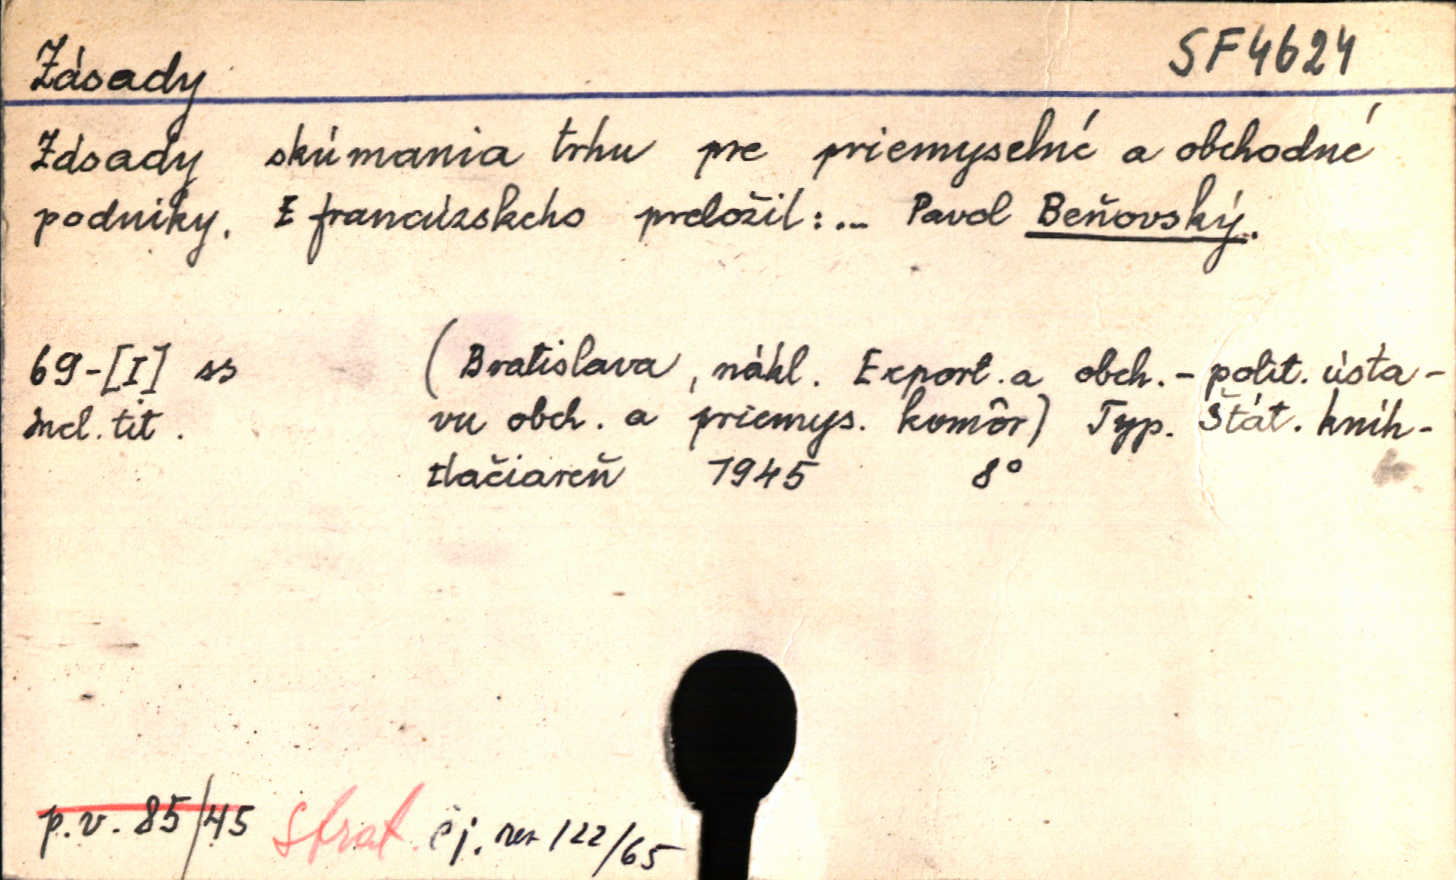 Zásady
SF4624
Zásady skúmania trhu pre priemyselné a obchodné
podniky. Z francúzskeho preložil:... Pavol Beňovský.
69-[I] ss
(Bratislava, nákl. Export. a obch.-polit. ústa-
incl. tit.
vu obch. a priemys. komôr) Typ. Štát. kníh-
tlačiareň 1945 8°
p.v. 85/45 strat. čj. rev 122/65